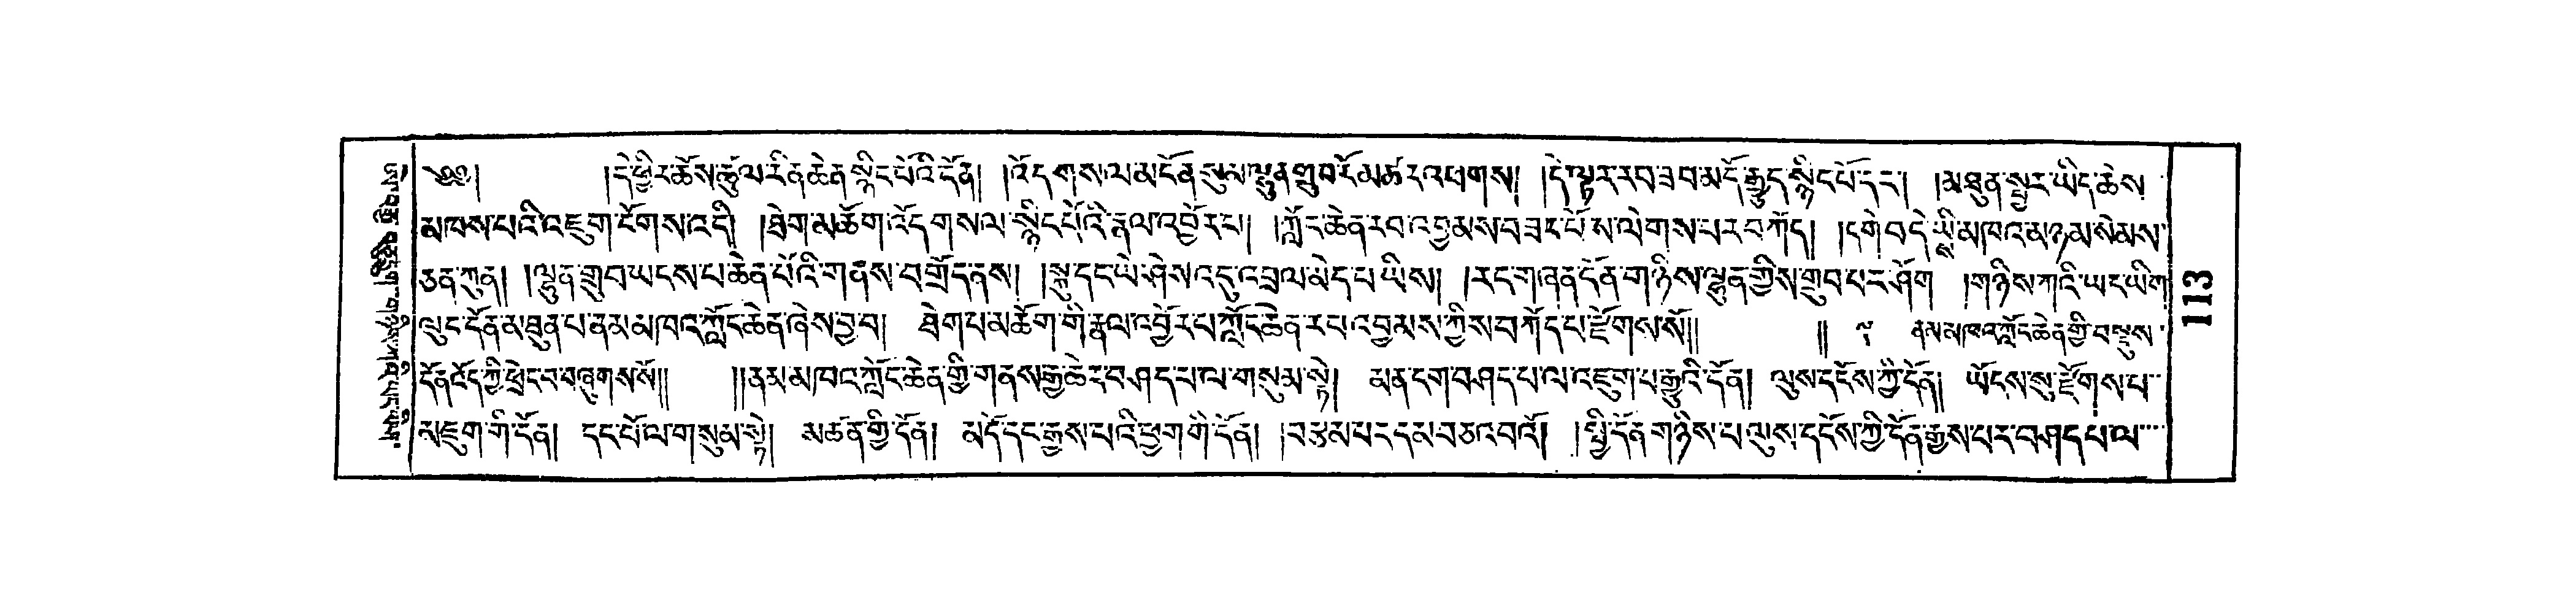 ༄༅། །དེ་ཕྱིར་ཆོས་ཚུལ་རིན་ཆེན་སྙིང་པོའི་དོན། །འོད་གསལ་མངོན་སུམ་ལྷུན་གྲུབ་ངོ་མཚར་འཕགས། །དེ་ལྟར་རབ་ཟབ་མདོ་རྒྱུད་སྙིང་པོ་དང་། །མཐུན་སྦྱར་ཡིད་ཆེས་
མཁས་པའི་འཇུག་ངོགས་འདི། །ཐེག་མཆོག་འོད་གསལ་སྙིང་པོའི་རྣལ་འབྱོར་པ། །ཀློང་ཆེན་རབ་འབྱམས་བཟང་པོས་ལེགས་པར་བཀོད། །དགེ་བ་དེ་ཡིས་མཁའ་མཉམ་སེམས་
ཅན་ཀུན། །ལྷུན་གྲུབ་ཡངས་པ་ཆེན་པོའི་གནས་བགྲོད་ནས། །སྐུ་དང་ཡེ་ཤེས་འདུ་འབྲལ་མེད་པ་ཡིས། །རང་གཞན་དོན་གཉིས་ལྷུན་གྱིས་གྲུབ་པར་ཤོག །གཉིས་ཀའི་ཡང་ཡིག
ལུང་དོན་མཐུན་པ་ནམ་མཁའ་ཀློང་ཆེན་ཞེས་བྱ་བ། ཐེག་པ་མཆོག་གི་རྣལ་འབྱོར་པ་ཀློང་ཆེན་རབ་འབྱམས་ཀྱིས་བཀོད་པ་རྫོགས་སོ།། །། ནམ་མཁའ་ཀློང་ཆེན་གྱི་བསྡུས་
དོན་འོད་ཀྱི་ཕྲེང་བ་བཞུགས་སོ།། །།ནམ་མཁའ་ཀློང་ཆེན་གྱི་གནས་རྒྱ་ཆེར་བཤད་པ་ལ་གསུམ་སྟེ། མན་ངག་བཤད་པ་ལ་འཇུག་པ་རྒྱུའི་དོན། ལུས་དངོས་ཀྱི་དོན། ཡོངས་སུ་རྫོགས་པ་
མཇུག་གི་དོན། དང་པོ་ལ་གསུམ་སྟེ། མཚན་གྱི་དོན། མདོ་དང་རྒྱས་པའི་ཕྱག་གི་དོན། །བརྩམ་པར་དམ་བཅའ་བའོ། །སྤྱི་དོན་གཉིས་པ་ལུས་དངོས་ཀྱི་དོན་རྒྱས་པར་བཤད་པ་ལ་
113